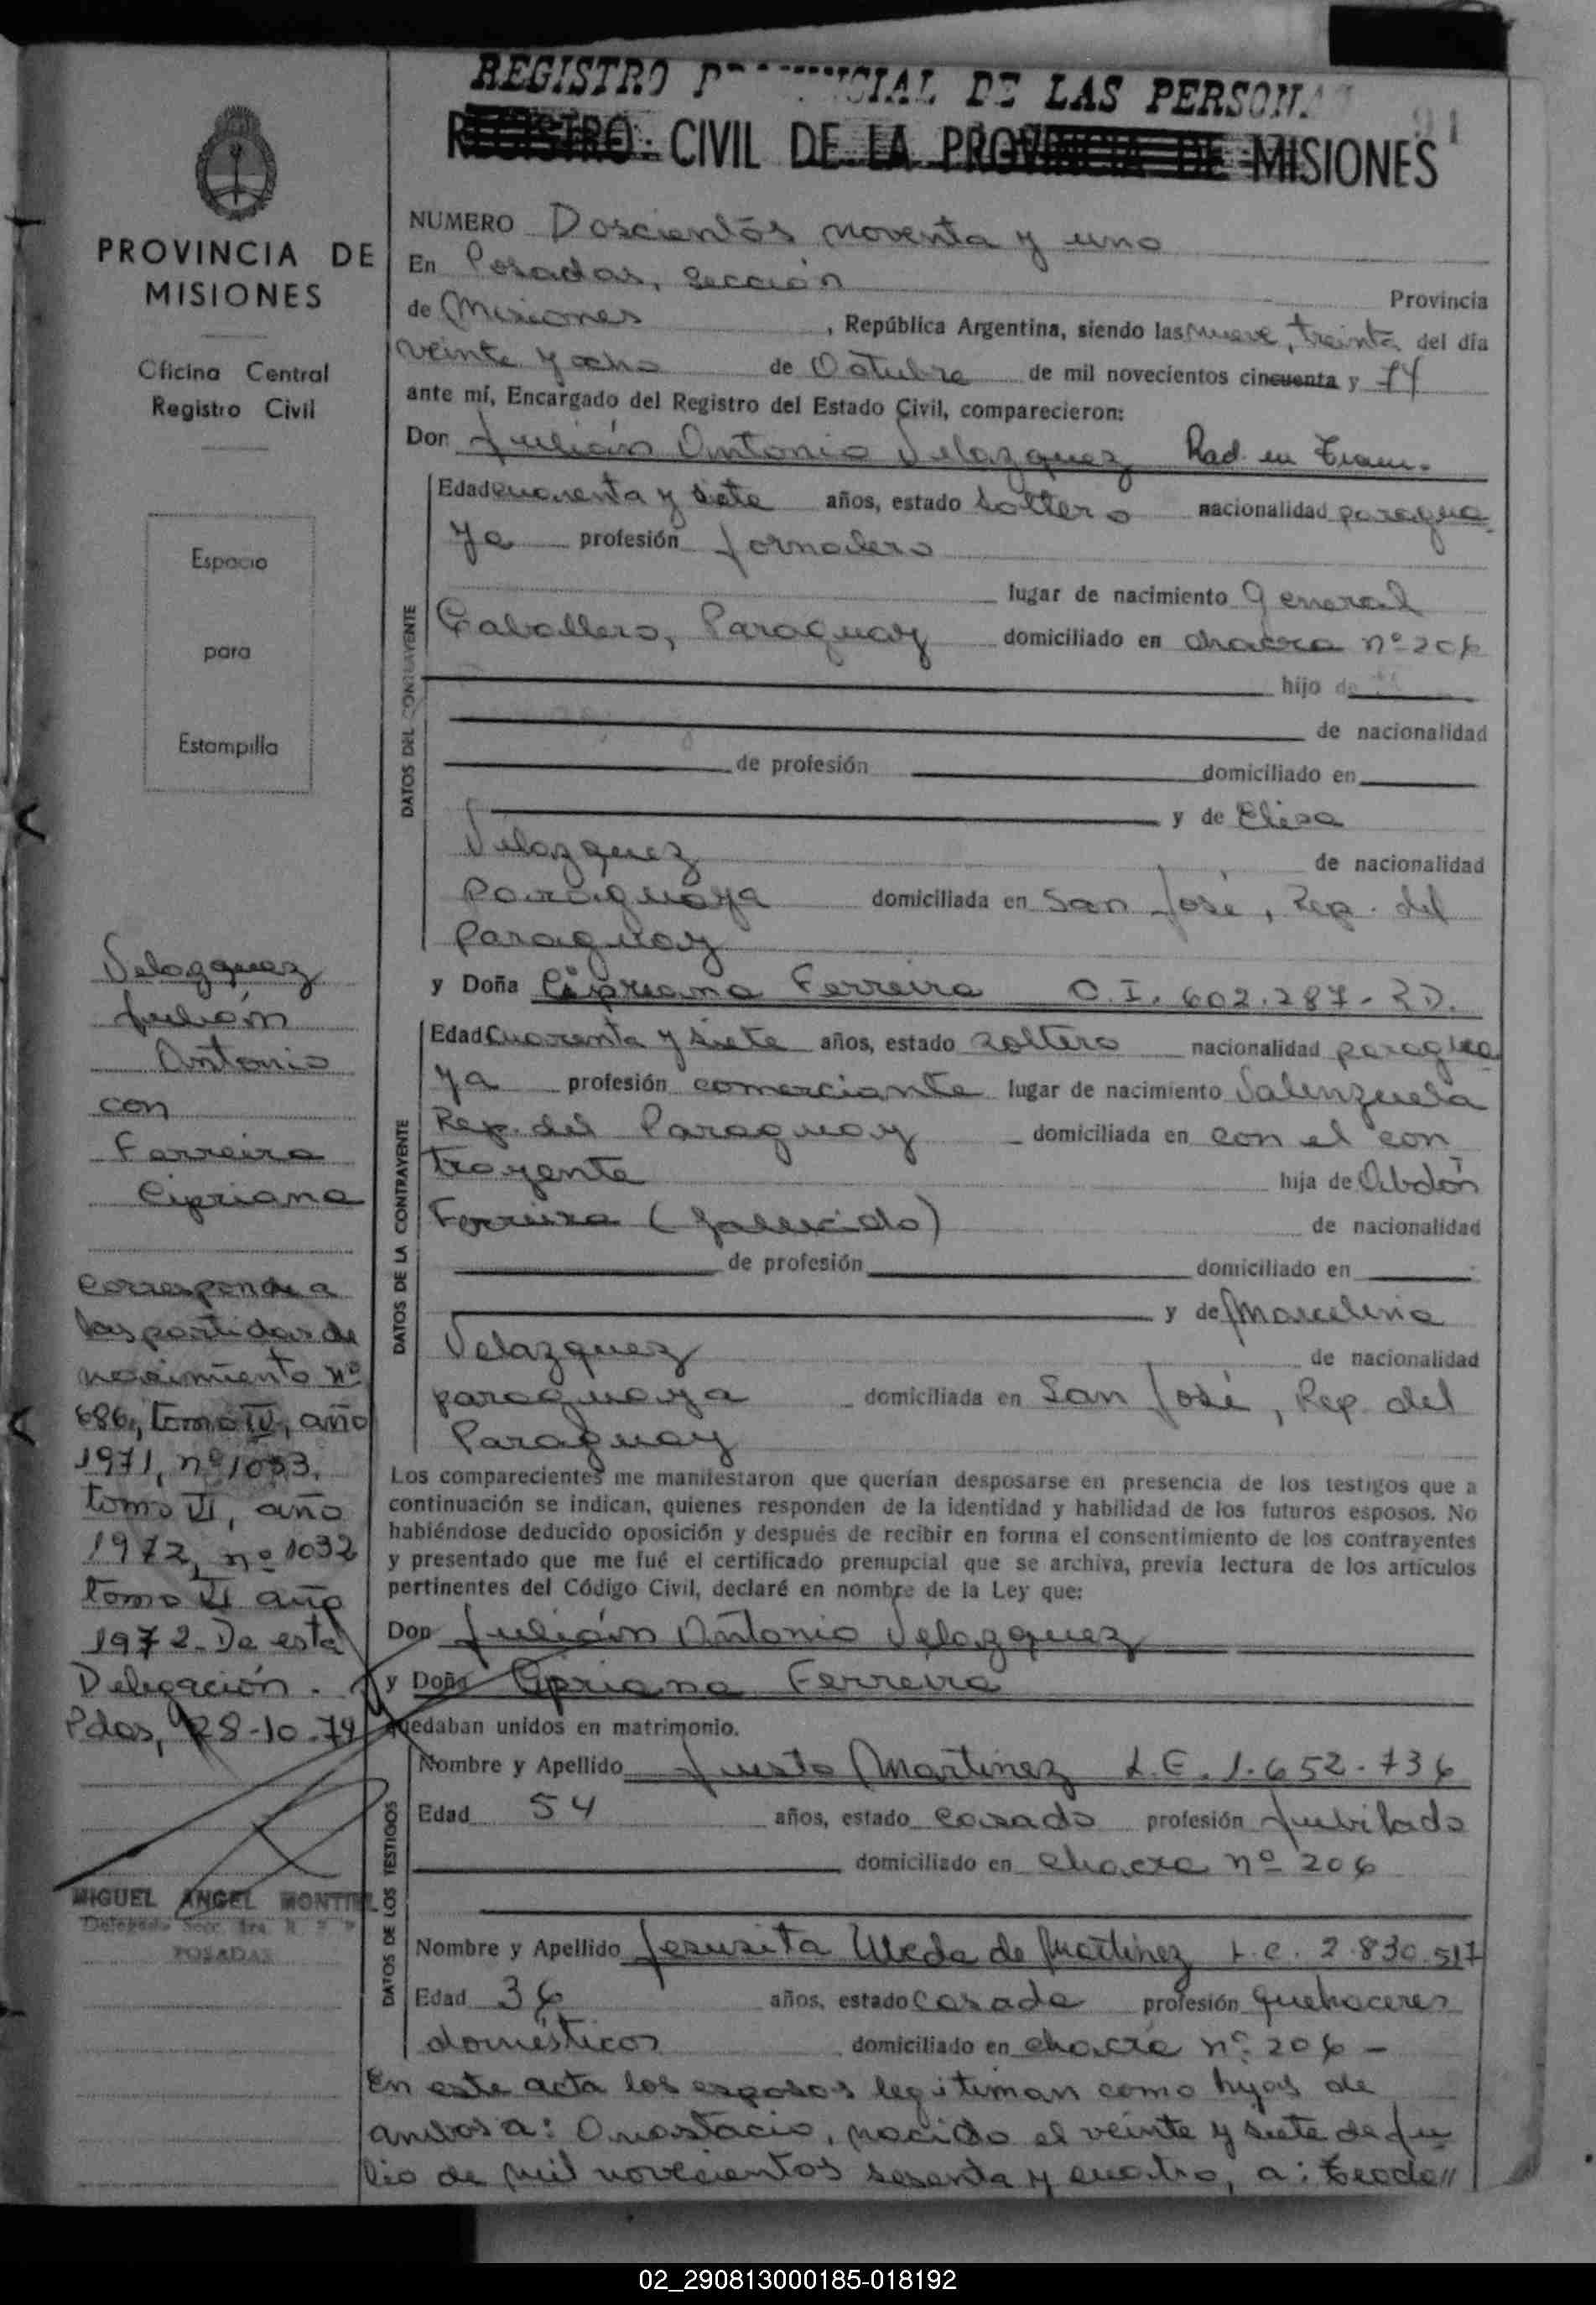 REGISTRO PROVINCIAL DE LAS PERSONAS
91
REGISTRO CIVIL DE LA PROVINCIA DE MISIONES
PROVINCIA DE
MISIONES
Oficina Central
Registro Civil
Espacio
para
Estampilla
Velazquez
Julián
Antonio
con
Ferreira
Cipriana
corresponde a
las partidas de
nacimiento nº
686, tomo IV, año
1971, nº 1033,
tomo VI, año
1972, nº 1032
tomo VI año
1972. De esta
Delegación.
Pdas, 28-10-74
MIGUEL ANGEL MONTIEL
POSADAS
NUMERO Doscientos noventa y uno
En Posadas, sección Provincia
de Misiones, República Argentina, siendo las nueve, treinta del día
veinte y ocho de Octubre de mil novecientos cincuenta y 74
ante mí, Encargado del Registro del Estado Civil, comparecieron:
Don Julián Antonio Velazquez Rad. en Tram.
DATOS DEL CONTRAYENTE
Edad cuarenta y siete años, estado soltero nacionalidad paragua
ya profesión jornalero
lugar de nacimiento General
Caballero, Paraguay domiciliado en chacra nº 206
hijo de
de nacionalidad
de profesión domiciliado en
y de Elisa
Velazquez de nacionalidad
paraguaya domiciliada en San José, Rep. del
Paraguay
y Doña Cipriana Ferreira C.I. 602.287-RD.
DATOS DE LA CONTRAYENTE
Edad cuarenta y siete años, estado soltera nacionalidad paragua
ya profesión comerciante lugar de nacimiento Valenzuela
Rep. del Paraguay domiciliada en con el con
trayente hija de Abdón
Ferreira (fallecido) de nacionalidad
de profesión domiciliado en
y de Marcelina
Velazquez de nacionalidad
paraguaya domiciliada en San José, Rep. del
Paraguay
Los comparecientes me manifestaron que querían desposarse en presencia de los testigos que a
continuación se indican, quienes responden de la identidad y habilidad de los futuros esposos. No
habiéndose deducido oposición y después de recibir en forma el consentimiento de los contrayentes
y presentado que me fué el certificado prenupcial que se archiva, previa lectura de los artículos
pertinentes del Código Civil, declaré en nombre de la Ley que:
Don Julián Antonio Velazquez
y Doña Cipriana Ferreira
quedaban unidos en matrimonio.
DATOS DE LOS TESTIGOS
Nombre y Apellido Justo Martinez L.E. 1.652.736
Edad 54 años, estado casado profesión jubilado
domiciliado en chacra nº 206
Nombre y Apellido Jesusita de Martinez L.C. 2.830.517
Edad 36 años, estado casada profesión quehaceres
domésticos domiciliado en chacra nº 206 -
En este acta los esposos legitiman como hijos de
ambos a: Anastacio, nacido el veinte y siete de Ju
lio de mil novecientos sesenta y cuatro, a: Teodo//
02_290813000185-018192